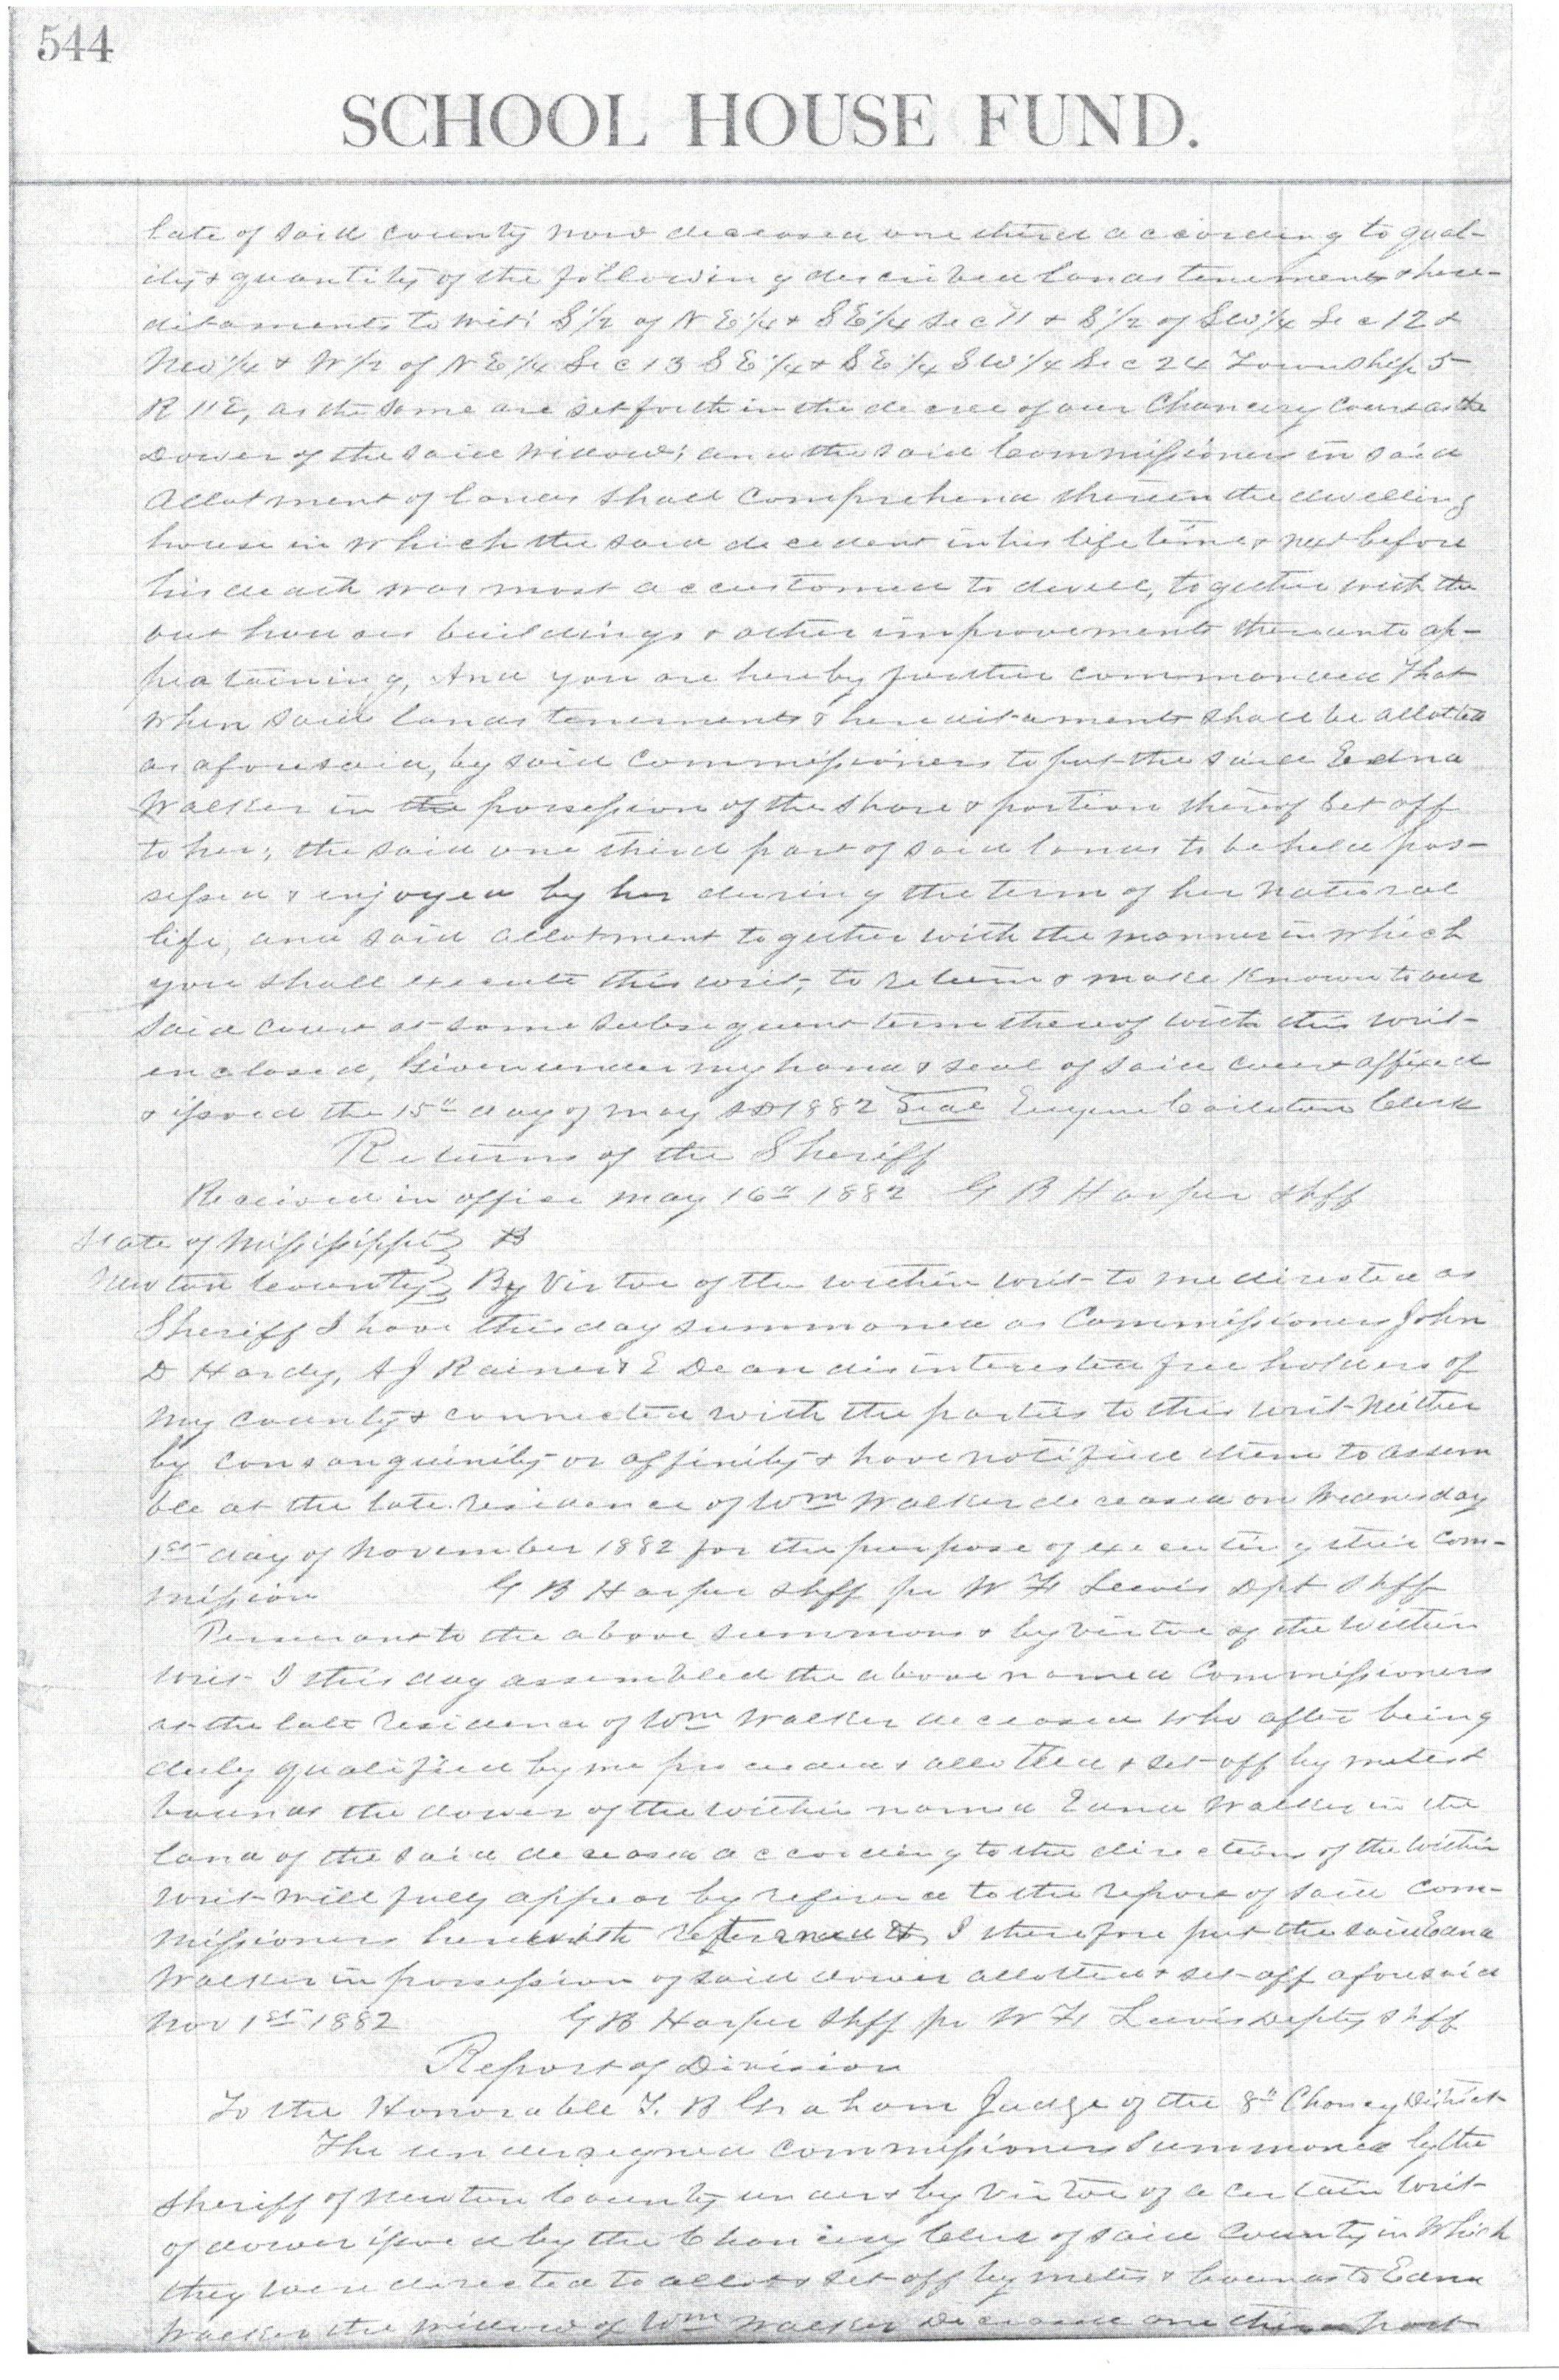 544
SCHOOL HOUSE FUND.
late of said county now deceased one third according to qual-
ity & quantity of the following described lands tenements & here-
ditaments to wit: S 1/2 of N E 1/4 & S E 1/4 Sec 11 & S 1/2 of S W 1/4 Sec 12 &
N W 1/4 & W 1/2 of N E 1/4 Sec 13 S E 1/4 & S E 1/4 S W 1/4 Sec 24 Township 5
R 11 E, as the same are set forth in the decree of our Chancery Court as the
Dower of the said widow; and the said Commissioners in said
allotment of lands shall comprehend therein the dwelling
house in which the said decedent in his life time & next before
his death was most accustomed to dwell, together with the
out houses buildings & other improvements thereunto ap-
pertaining, And you are hereby further commanded That
when said lands tenements & hereditaments shall be allotted
as aforesaid, by said Commissioners to put the said Edna
Walker in the possession of the share & portion thereof set off
to her; the said one third part of said lands to be held pos-
sessed & enjoyed by her during the term of her natural
life, and said allotment together with the manner in which
you shall execute this writ, to return & make known to our
said court at some subsequent term thereof with this writ
enclosed, Given under my hand & seal of said court affixed
& issued the 15th day of May AD 1882 Seal Eugene Carleton Clerk
Returns of the Sheriff
Received in office May 16th 1882 G B Harper Shff
State of Mississippi } B
Newton County } By Virtue of the within writ to me directed as
Sheriff I have this day summoned as Commissioners John
D Hardy, A J Rainer & E Dean disinterested free holders of
my county & connected with the parties to this writ neither
by consanguinity or affinity & have notified them to assem
ble at the late residence of Wm Walker deceased on Wednesday
1st day of November 1882 for the purpose of executing their com-
mission G B Harper Shff pr W F Lewis Dpt Shff
Persuant to the above summons & by virtue of the within
writ I this day assembled the above named Commissioners
at the late residence of Wm Walker deceased who after being
duly qualified by me proceeded & allotted & set off by metes &
bounds the dower of the within named Edna Walker in the
land of the said deceased according to the directions of the within
writ will fully appear by reference to the report of said Com-
missioners herewith returned I therefore put the said Edna
Walker in possession of said dower allotted & set off aforesaid
Nov 1st 1882 G B Harper Shff pr W F Lewis Depty Shff
Report of Division
To the Honorable T. B Graham Judge of the 8th Chancy District
The undersigned Commissioners summoned by the
Sheriff of Newton County under & by virtue of a certain writ
of dower issued by the Chancery Clerk of said County in which
they were directed to allot & set off by metes & bounds to Edna
Walker the widow of Wm Walker Deceased one third part